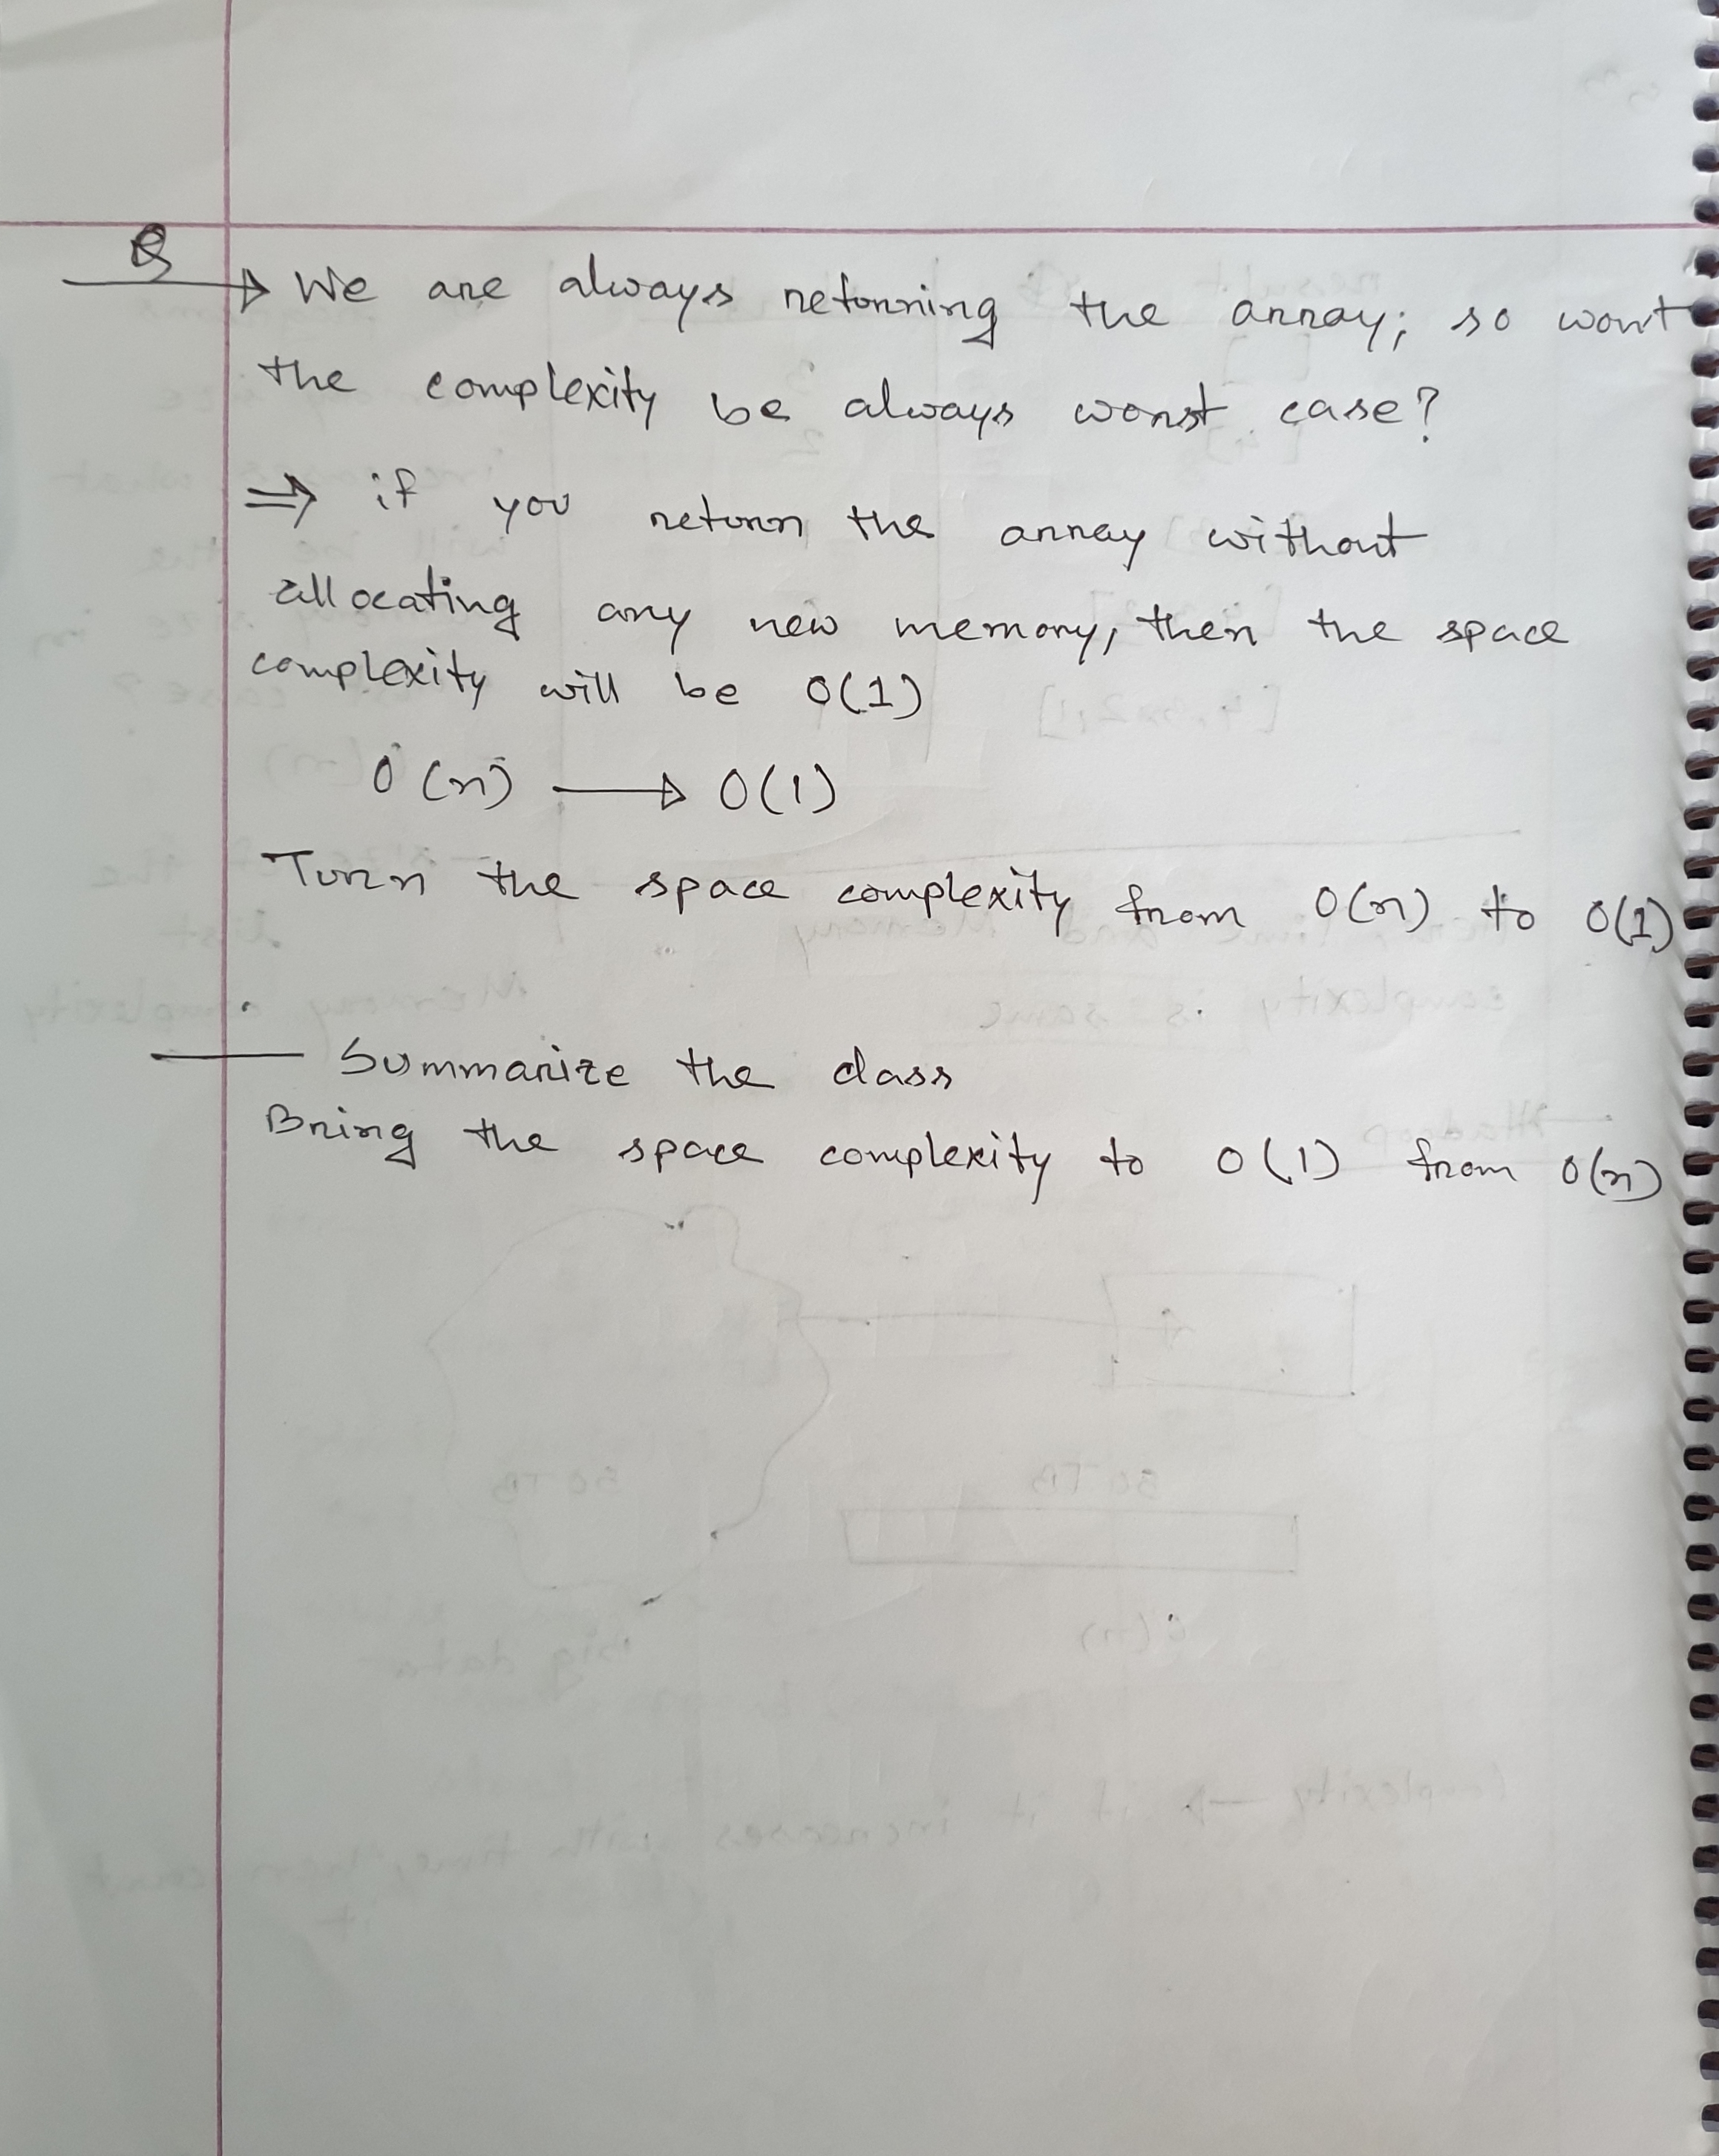 Q → We are always returning the array; so wont
the complexity be always worst case?
⇒ if you return the array without
allocating any new memory, then the space
complexity will be O(1)
O(n) → O(1)
Turn the space complexity from O(n) to O(1)
— Summarize the class
Bring the space complexity to O(1) from O(n)